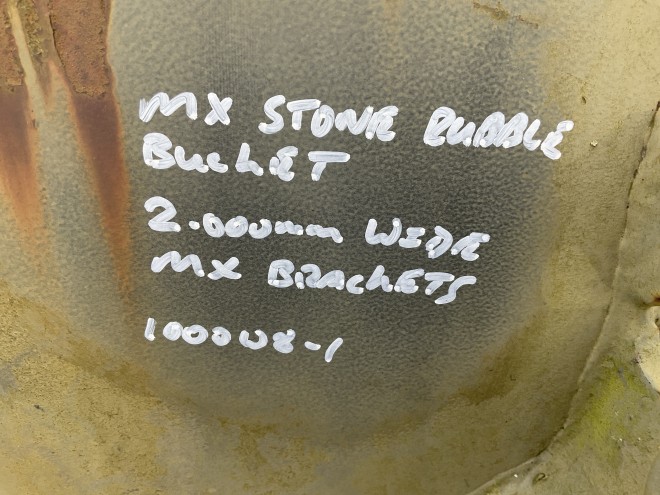 MX STONE RUBBLE
BUCKET
2.000mm WIDE
MX BRACKETS
100008-1